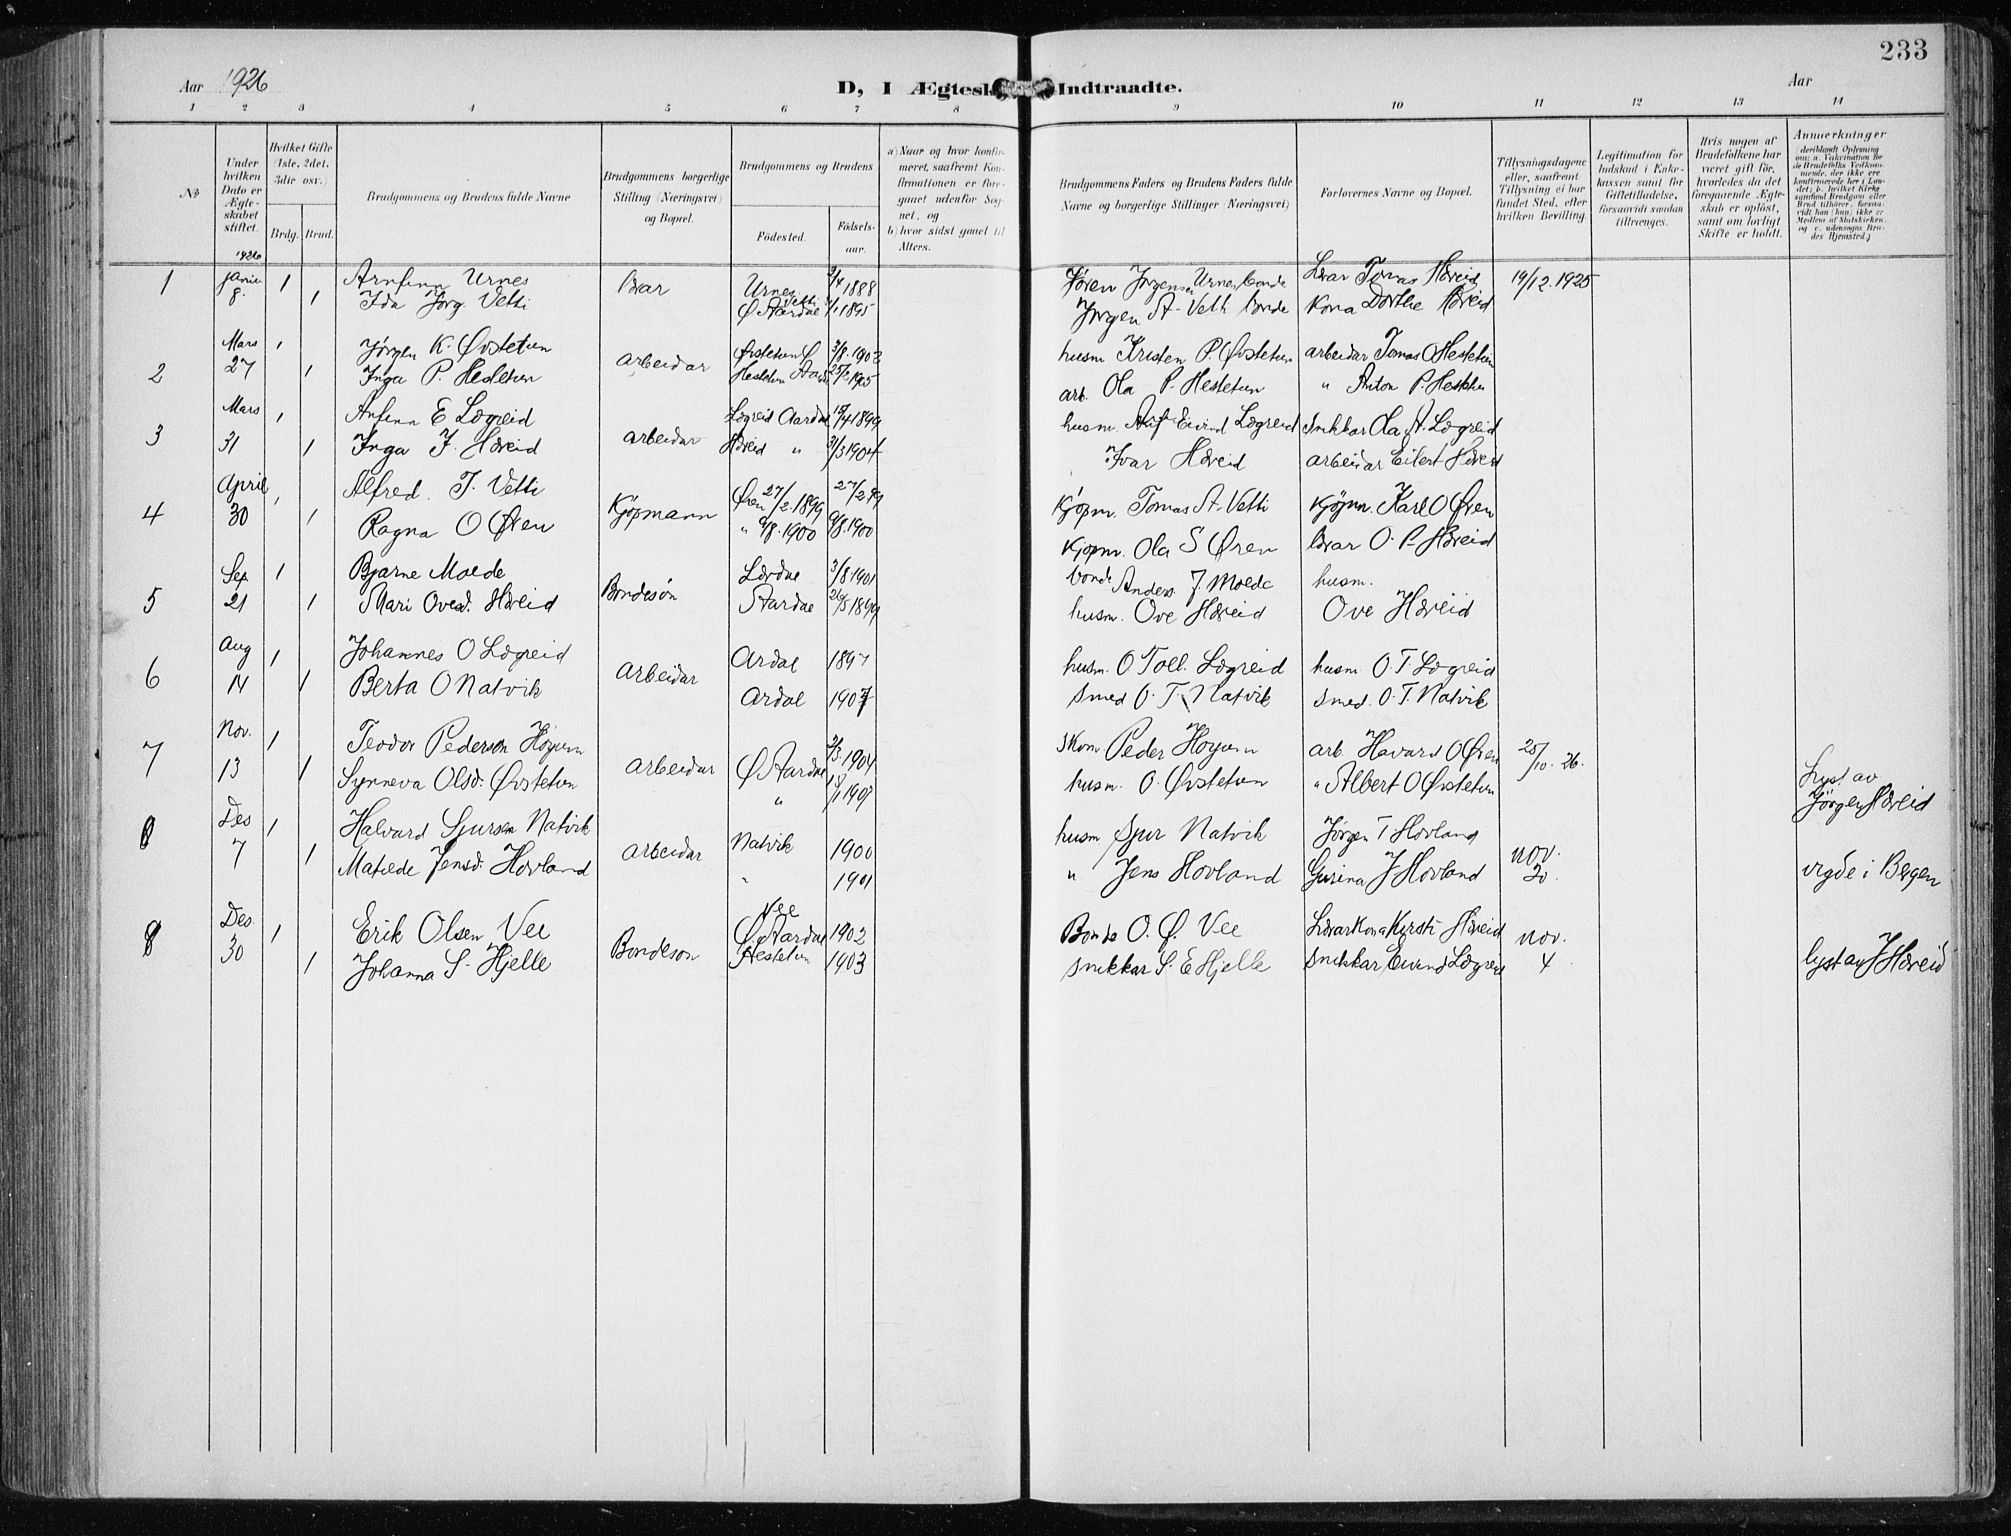 233
Aar 1926
D, I Ægtesk Indtraadte.
Aar
1 2 3 4 5 6 7 8 9 10 11 12 13 14
No
Under hvilken Dato er Ægteskabet stiftet.
Hvilket Gifte (1ste, 2det, 3die osv.)
Brdg. Brud.
Brudgommens og Brudens fulde Navne
Brudgommens borgerlige Stilling (Næringsvei) og Bopæl.
Brudgommens og Brudens
Fødested. Fødselsaar.
a) Naar og hvor konfirmeret, saafremt Konfirmationen er foregaaet udenfor Sognet, og
b) hvor sidst gaaet til Alters.
Brudgommens Faders og Brudens Faders fulde Navne og borgerlige Stillinger (Næringsvei)
Forlovernes Navne og Bopæl.
Tillysningsdagene eller, saafremt Tillysning ei har fundet Sted, efter hvilken Bevilling.
Legitimation for Indskud i Enkekassen samt for Giftetilladelse, forsaavidt saadan tiltrænges.
Hvis nogen af Brudefolkene har været gift før, hvorledes da det foregaaende Ægteskab er opløst, samt om lovligt Skifte er holdt.
Anmerkninger
(deriblandt Oplysning om: a. Vakcination for de Brudefolks Vedkommende, der ikke ere konfirmerede her i Landet; b. hvilket Kirkesamfund Brudgom eller Brud tilhører, forsaavidt han (hun) ikke er Medlem af Statskirken, og c. udensogns Brudes Hjemsted.)
1926
1 Janu 8. 1 Arnfinn Urnes Urnes 2/4 1888 Søren Jørgensen Urnes bonde Lærar Tomas Hæreid 19/12 1925
1 Ida Jørg. Vetti Vetti Ø Aardal 1/1 1895 Jørgen A. Vetti bonde Kona Dorthe Hæreid
2 Mars 27 1 Jørgen K. Øvstetun arbeidar Øvstetun Ø 3/8 1902 husm Kristen P. Øvstetun arbeidar Tomas O Hestetun
1 Inga P. Hestetun Hestetun Aard 25/2 1905 arb. Ola P. Hestetun " Anton P. Hestetun
3 Mars 31 1 Anfinn E Lægreid arbeidar Lægreid Aardal 15/4 1899 husm. Eivind Lægreid Snikkar Ola A. Lægreid
1 Inga I. Hæreid Hæreid " 3/3 1904 Ivar Hæreid arbeidar Eilert Hæreid
4 April 30 1 Alfred T. Vetti Kjøpmann Øren 27/2 1899 27/2 99 Kjøpm. Tomas A. Vetti Kjøpm. Karl O Øren
1 Ragna O Øren " 9/8 1900 9/8 1900 Kjøpm. Ola S Øren lærar O. P. Hæreid
5 Sep 21 1 Bjarne Molde Bondesøn Lærdal 3/8 1901 bonde Anders J. Molde husm.
1 Mari Ovesd. Hæreid Aardal 26/5 1899 husm. Ove Hæreid Ove Hæreid
6 Aug 14 1 Johannes O Lægreid arbeidar Ardal 1897 husm. O Toll. Lægreid husm O T. Lægreid
1 Berta O Natvik Ardal 1907 Smed O. T. Natvik Smed. O. T. Natvik
7 Nov. 13 1 Teodor Pedersen Høyum arbeidar Ø Aardal 2/3 1904 Skom. Peder Høyum arb. Havard O Øren 25/10. 26.
1 Synneva Olsd. Øvstetun " 18/1 1907 husm. O. Øvstetun " Albert O Øvstetun Lyst av Jørgen Hæreid
8 Des 7 1 Halvard Sjursen Natvik arbeidar Natvik 1900 husm Sjur Natvik Jørgen T Hovland nov. 20.
1 Matilde Jensd. Hovland " 1901 " Jens Hovland Gurina J Hovland vigde i Bergen
8 Des. 30 1 Erik Olsen Vee Bondeson Vee Ø. Aardal 1902 Bonde O. Ø. Vee Lærarkona Kirsti Hæreid nov. 4
1 Johanna S. Hjelle Hestetun 1903 Snikkar S. E Hjelle Snikkar Eivind Lægreid lyst av J Hæreid